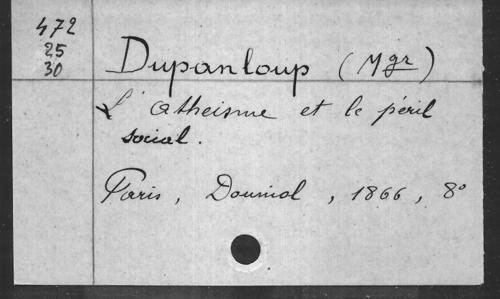 472
25
30
Dupanloup (Mgr)
L'atheisme et le péril
social.
Paris, Douniol, 1866, 8º